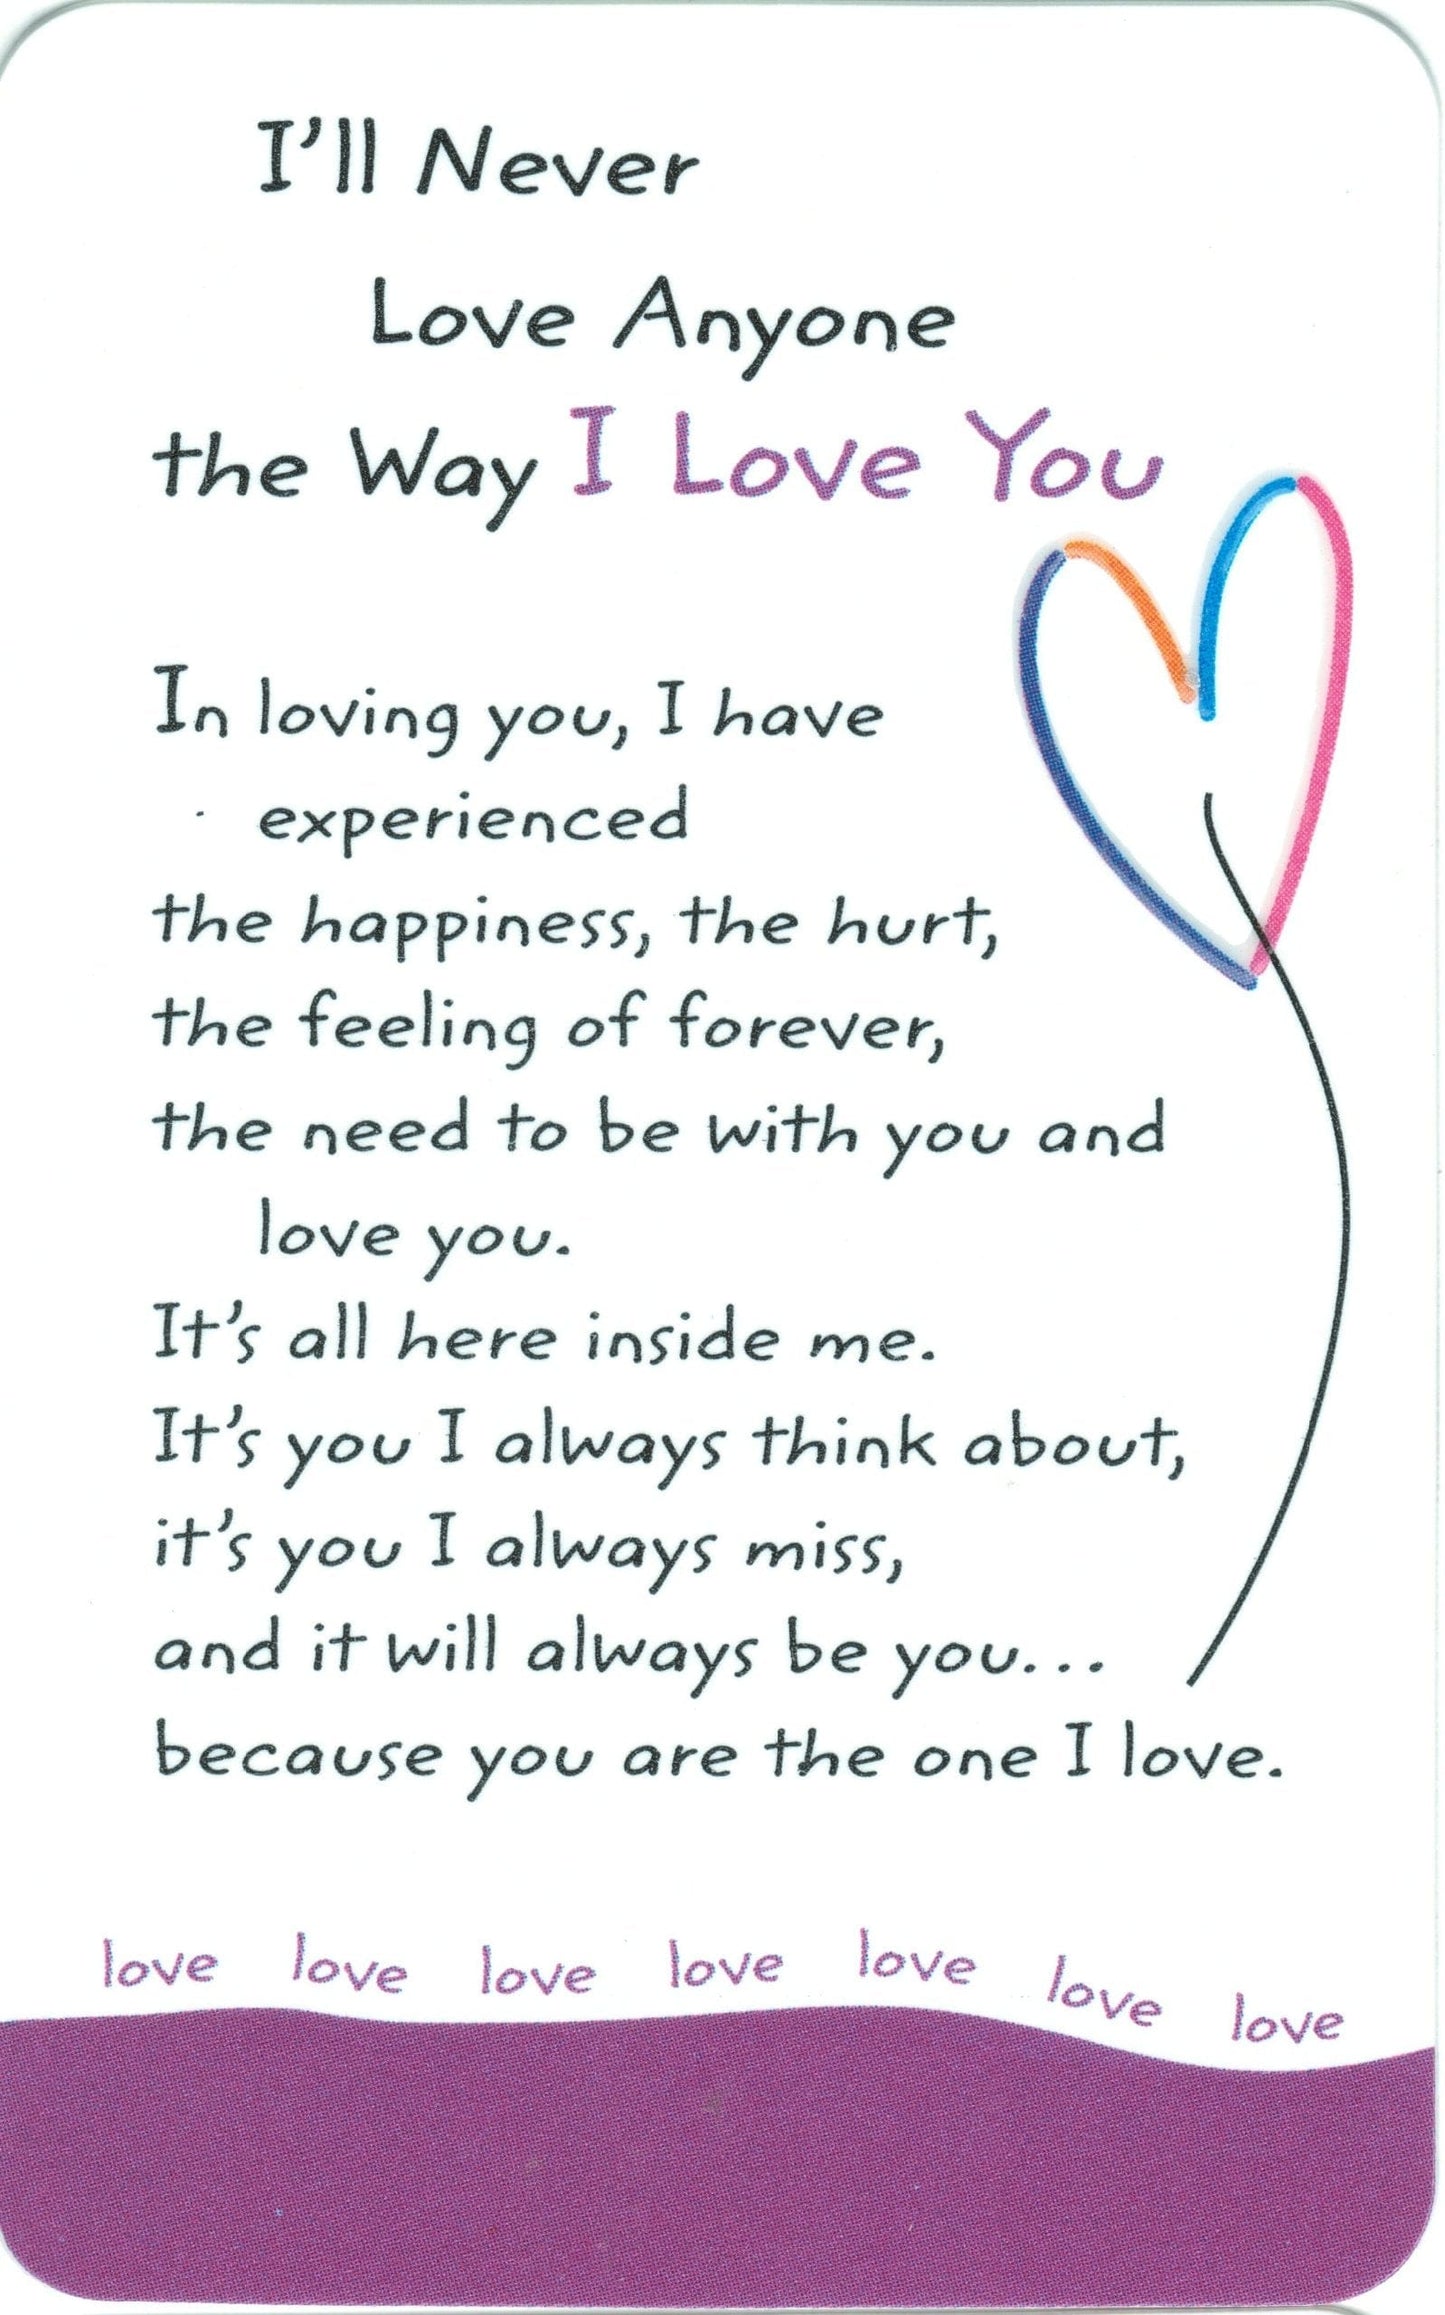 I'll Never
Love Anyone
the Way I Love You
In loving you, I have
experienced
the happiness, the hurt,
the feeling of forever,
the need to be with you and
love you.
It's all here inside me.
It's you I always think about,
it's you I always miss,
and it will always be you...
because you are the one I love.
love love love love love love love